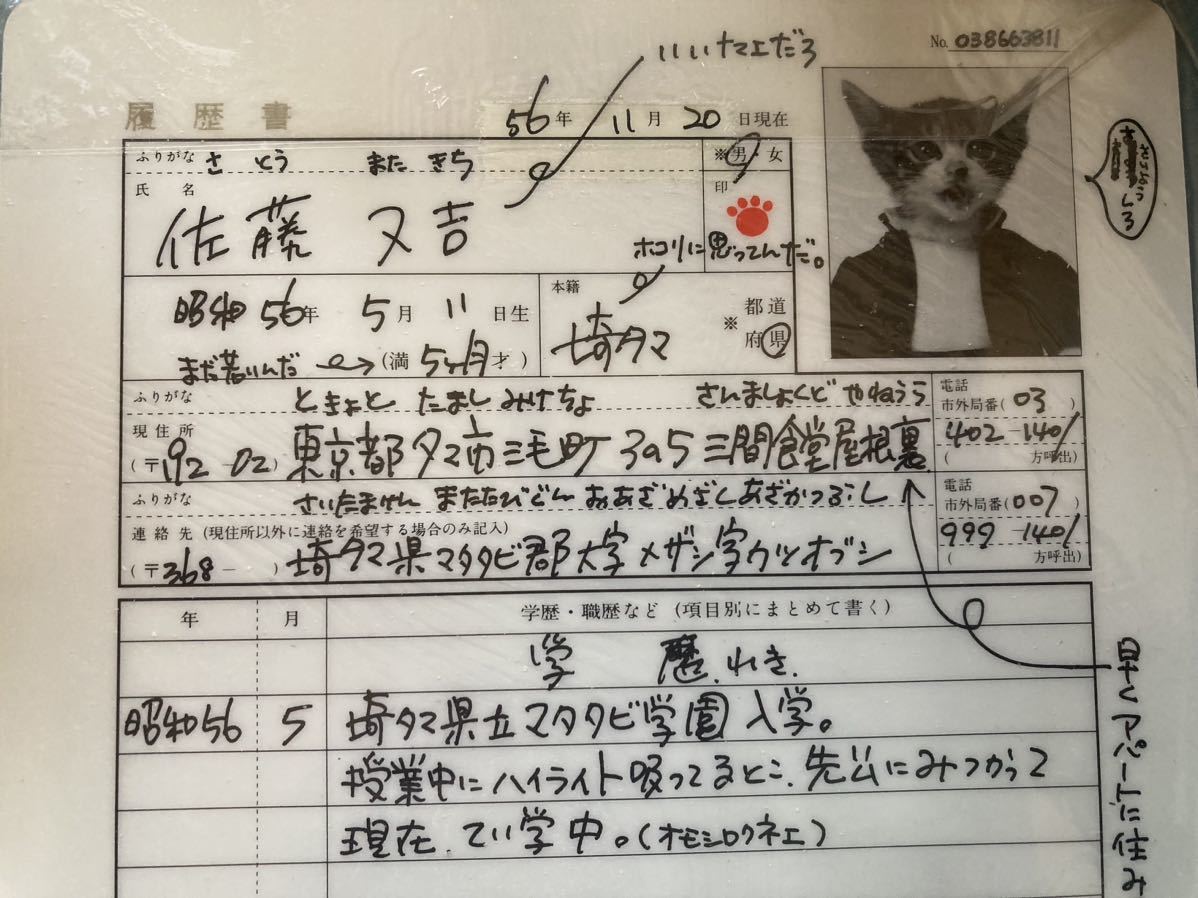 No. 038663811
いいナマエだろ
履歴書
56年 11月 20日現在
ふりがな さとう またきち
※男・女
氏名
佐藤 又吉
印
ホコリに思ってんだ。
しろ
昭和56年 5月 11日生
まだ若いんだ (満 5ヶ月才)
本籍
埼タマ
※都道府県
ふりがな ときょと たまし みけちょ さんましょくど やねうら
電話
市外局番(03)
現住所
(〒192-02) 東京都タマ市三毛町3の5三間食堂屋根裏
402-1401
( 方呼出)
ふりがな さいたまけん またたびぐん おあざめざしあざかつぶし
電話
市外局番(007)
連絡先 (現住所以外に連絡を希望する場合のみ記入)
(〒368- ) 埼タマ県マタタビ郡大字メザシ字カツオブシ
999-1401
( 方呼出)
年 月 学歴・職歴など (項目別にまとめて書く)
学 歴.れき.
昭和56 5 埼タマ県立マタタビ学園入学。
授業中にハイライト吸ってるとこ、先公にみつかって
現在、てい学中。(オモシロクネエ)
早くアパートに住み